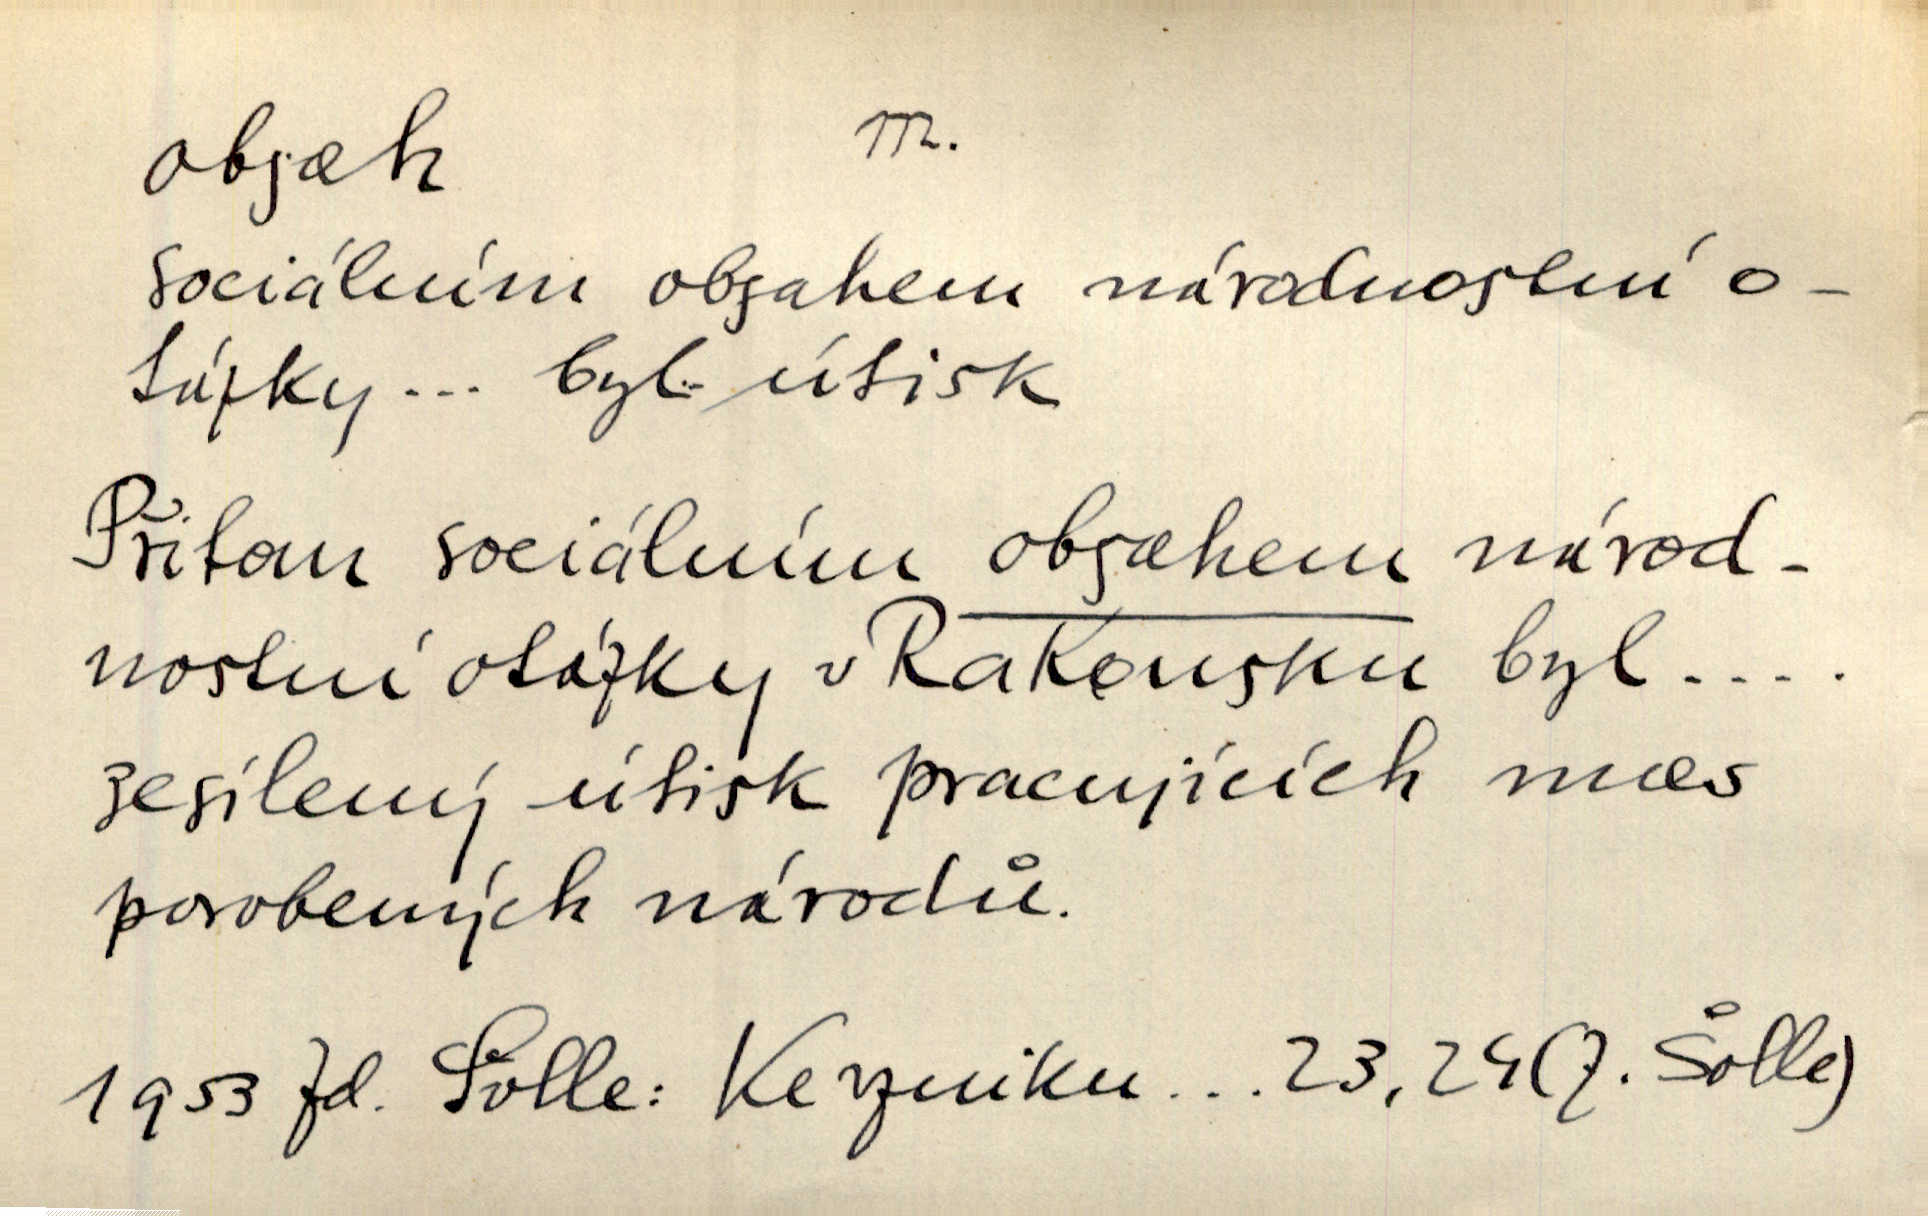 obsah m.
sociálním obsahem národnostní o-
tázky... byl útisk
Přitom sociálním obsahem národ-
nostní otázky v Rakousku byl ....
zesílený útisk pracujících mas
porobených národů.
1953 Zd. Šolle: Ke vzniku...23, 24 (Z. Šolle)